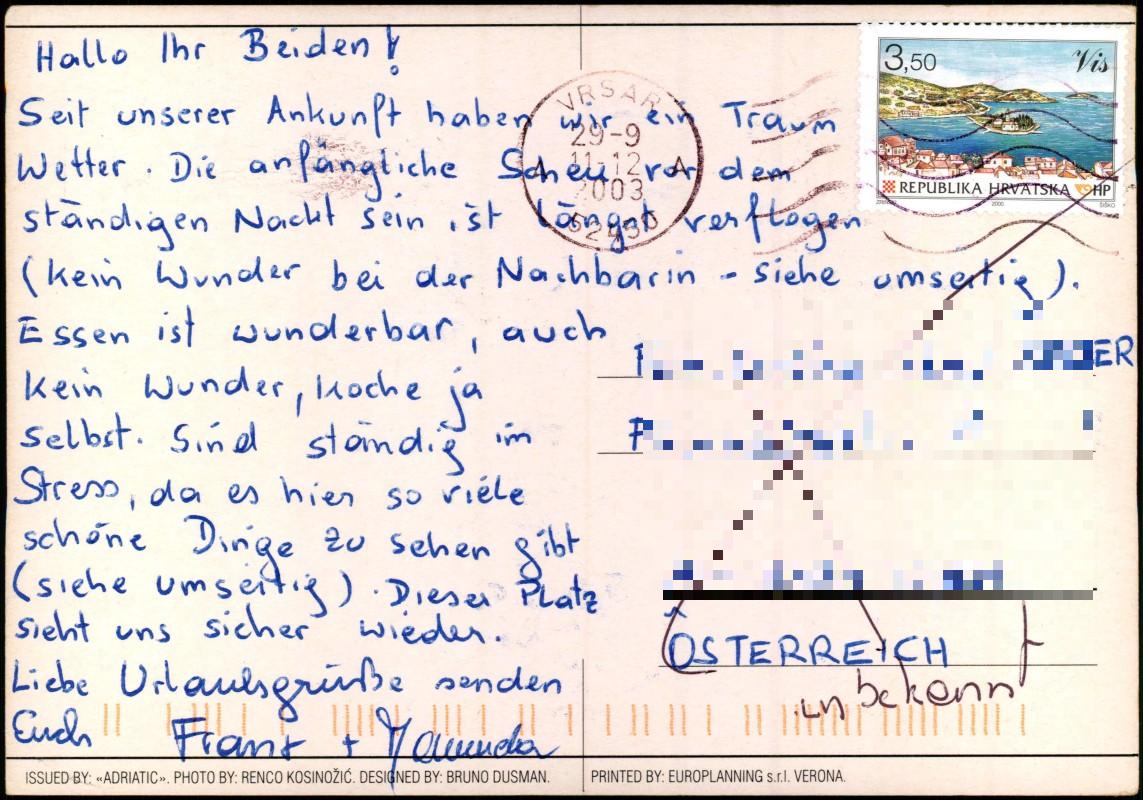 Hallo Ihr Beiden!
Seit unserer Ankunft haben wir ein Traum
Wetter. Die anfängliche Scheu vor dem
ständigen Nackt sein ist längst verflogen
(kein Wunder bei der Nachbarin - siehe umseitig).
Essen ist wunderbar, auch
kein Wunder, koche ja
selbst. Sind ständig im
Stress, da es hier so viele
schöne Dinge zu sehen gibt
(siehe umseitig). Dieser Platz
sieht uns sicher wieder.
Liebe Urlaubsgrüße senden
Euch Franz +
VRSAR
29-9
11-12
A A
2003
52450
3,50 Vis
REPUBLIKA HRVATSKA HP
2000.
ER
ÖSTERREICH
unbekannt
ISSUED BY: «ADRIATIC». PHOTO BY: RENCO KOSINOŽIĆ. DESIGNED BY: BRUNO DUSMAN.
PRINTED BY: EUROPLANNING s.r.l. VERONA.